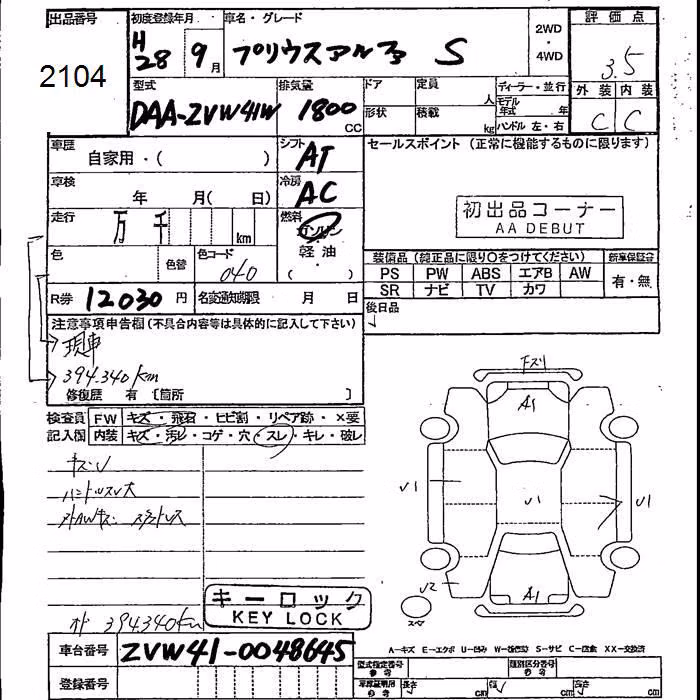 出品番号 初度登録年月 車名・グレード 評価点
2104 H28 9月 プリウスアルファ S 2WD・4WD 3.5
型式 排気量 ドア 定員 人 ディーラー・並行 外装 内装
DAA-ZVW41W 1800 CC 形状 積載 kg モデル年式 年 ハンドル 左・右 C C
車歴 自家用・( ) シフト AT セールスポイント (正常に機能するものに限ります)
車検 年 月( 日) 冷房 AC
初出品コーナー
AA DEBUT
走行 万 千 km 燃料 ガソリン
軽油
( )
色 色替 色コード 040
装備品 (純正品に限り○をつけてください) 新車保証書
PS PW ABS エアB AW 有・無
SR ナビ TV カワ
R券 12030円 名変通知期限 月 日 後日品
注意事項申告欄 (不具合内容等は具体的に記入して下さい)
現車
394.340km
修復歴 有 〔箇所 〕
検査員 FW キズ・飛石・ヒビ割・リペア跡・×要
記入欄 内装 キズ・汚レ・コゲ・穴・スレ・キレ・破レ
キズ
ハンドルスレ大
394.340km
キーロック
KEY LOCK
車台番号 ZVW41-0048645
登録番号
下スリ
A1
U1
U1
U1
U2
A1
スペア
A-キズ E-エクボ U-凹み S-サビ C-腐食 XX-交換済
型式指定番号 類別区分番号
長さ cm cm 高さ cm